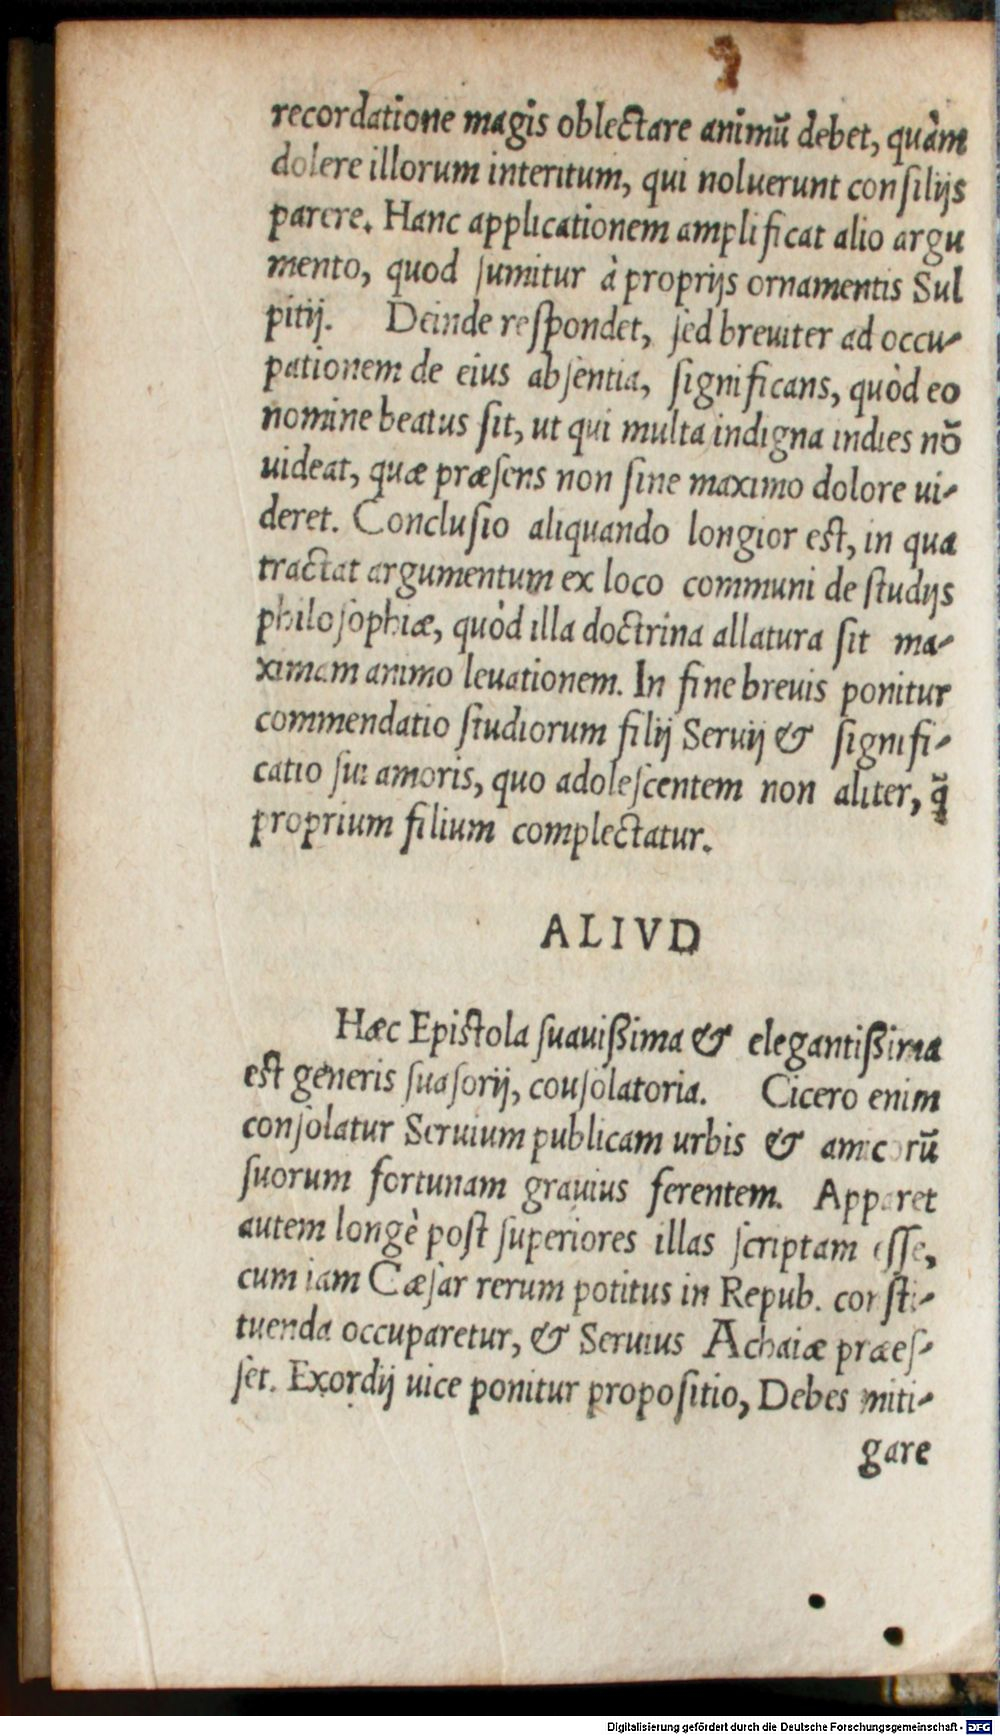 recordatione magis oblectare animũ debet, quàm
dolere illorum interitum, qui noluerunt consilijs
parere. Hanc applicationem amplificat alio argu
mento, quod sumitur à proprijs ornamentis Sul
pitij. Deinde respondet, sed breuiter ad occu-
pationem de eius absentia, significans, quòd eo
nomine beatus sit, ut qui multa indigna indies nō
uideat, quæ præsens non sine maximo dolore ui-
deret. Conclusio aliquando longior est, in qua
tractat argumentum ex loco communi de studijs
philosophiæ, quòd illa doctrina allatura sit ma-
ximam animo leuationem. In fine breuis ponitur
commendatio studiorum filij Seruij & signifi-
catio sui amoris, quo adolescentem non aliter, q̃
proprium filium complectatur.
ALIVD
Hæc Epistola suauißima & elegantißima
est generis suasorij, cousolatoria. Cicero enim
consolatur Seruium publicam urbis & amicorũ
suorum fortunam grauius ferentem. Apparet
autem longè post superiores illas scriptam esse,
cum iam Cæsar rerum potitus in Repub. consti-
tuenda occuparetur, & Seruius Achaiæ præes-
set. Exordij uice ponitur propositio, Debes miti-
gare
Digitalisierung gefördert durch die Deutsche Forschungsgemeinschaft - DFG